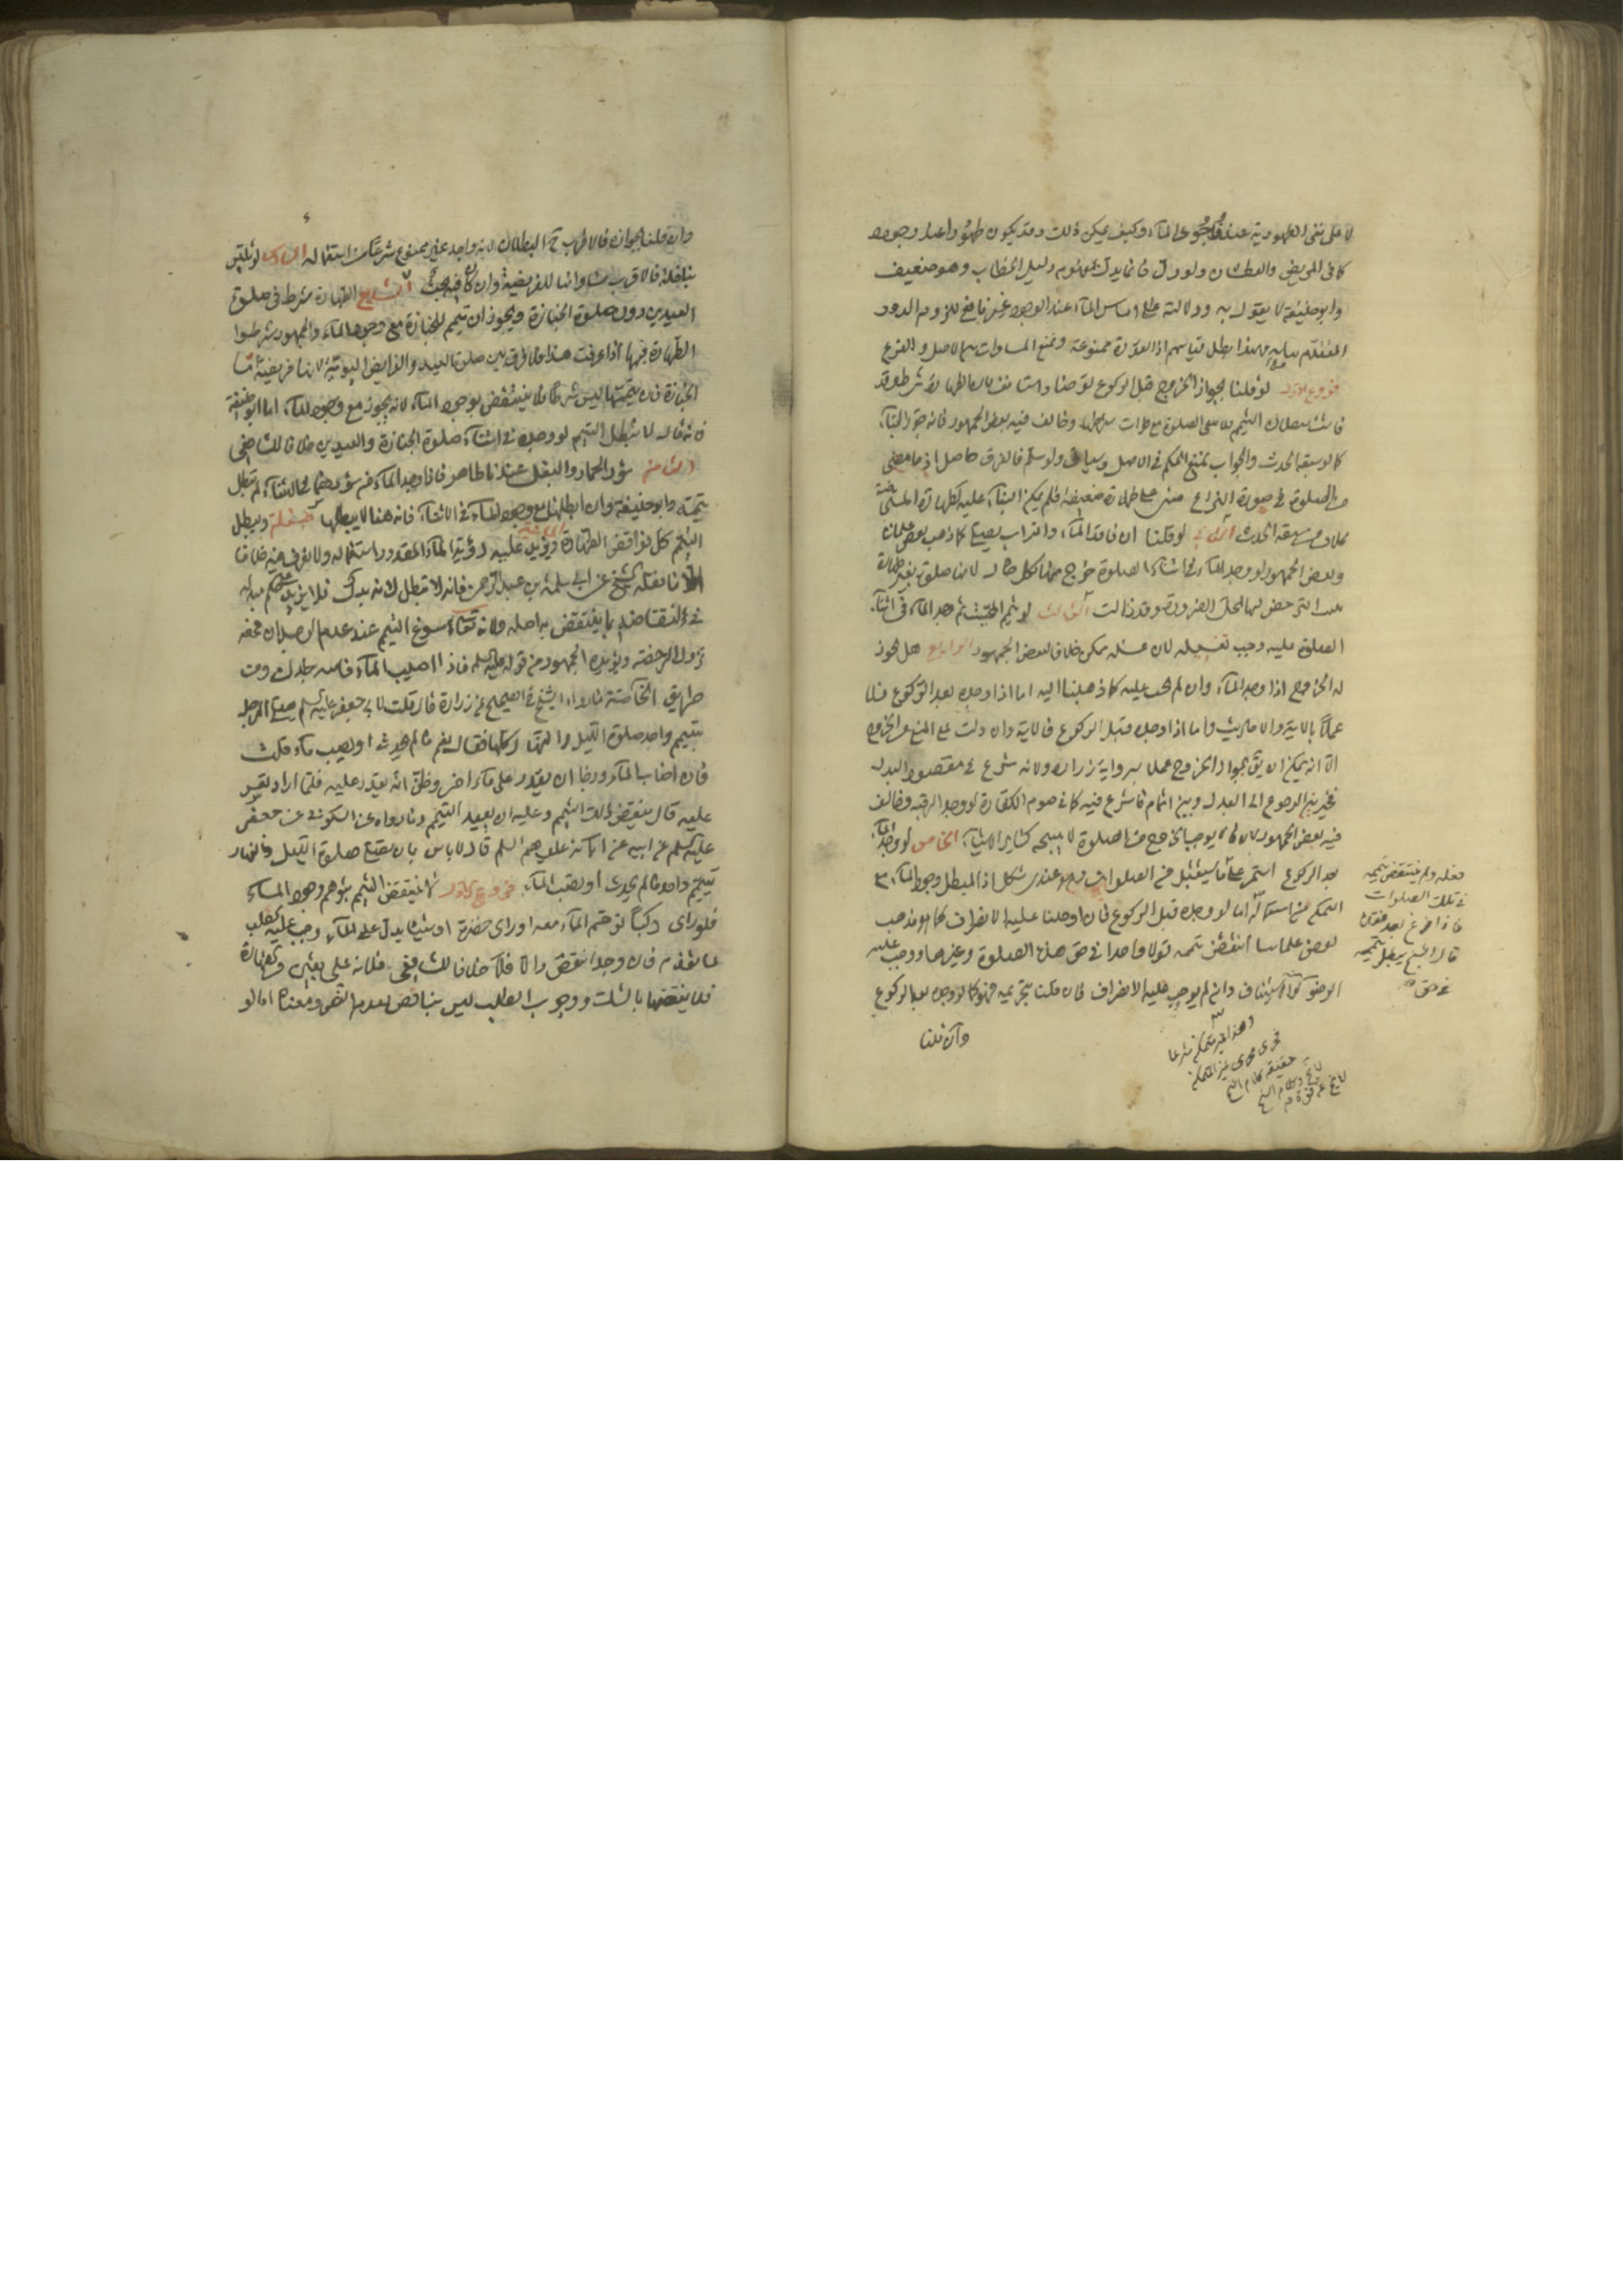 لا على نفى الطهورية عند وجود الماء وكيف يمكن ذلك وقد يكون طهورا عند وجوده
كما فى المريض والعطشان ولو دل فانما يدل بمفهوم دليل الخطاب وهو ضعيف
وابو حنيفة لا يقول به ودلالته على امساس الماء عند الوجود غير نافع للزوم الدور
المتقدم بيانه وبهذا بطل قياسهم اذ العدة ممنوعة ونمنع المساواة بين الاصل والفرع
فروع الاول لو قلنا بجواز الخروج قبل الركوع توضأ واستأنف لان الطهارة شرط وقد
فاتت ببطلان التيمم فلا تبقى الصلوة مع فوات شرطها وخالف فيه بعض الجمهور فانه جوز البناء
كما لو سبقه الحدث والجواب نمنع الحكم فى الاصل وسيأتى ولو سلم فالفرق حاصل اذ ما مضى
من الصلوة فى صورة النزاع مبنى على طهارة ضعيفة فلم يمكن البناء عليه كطهارة المستحاضة
بخلاف من سبقه الحدث الثانى لو قلنا ان فاقد الماء والتراب يصلى كما ذهب بعض علمائنا
وبعض الجمهور لو وجد الماء فى اثناء الصلوة خرج منها بكل حال لانها صلوة بغير طهارة
انما ترخص لها لمحل الضرورة وقد زالت الثالث لو تيمم الميت ثم وجد الماء فى اثناء
الصلوة عليه وجب تغسيله لان غسله ممكن خلافا لبعض الجمهور الرابع هل يجوز
له الخروج اذا وجد الماء وان لم يجب عليه كما ذهبنا اليه اما اذا وجده بعد الركوع فلا
عملا بالاية والاحاديث واما اذا وجده قبل الركوع فالاية وان دلت على المنع من الخروج
الا انه يمكن ان يق بجواز الخروج عملا برواية زرارة ولانه شرع فى مقصود البدل
فخير بين الرجوع الى المبدل وبين اتمام ما شرع فيه كما فى صوم الكفارة لو وجد الرقبة وخالف
فيه بعض الجمهور لان ما لا يوجب الخروج من الصلوة لا يبيحه كسائر الاشياء الخامس لو وجد الماء
بعد الركوع استمر على ما سيفعل من الصلوات وهو عندى مشكل اذ المبطل وجود الماء مع
التمكن من استعماله اما لو وجده قبل الركوع فان اوجبنا عليه الانصراف كما هو مذهب
بعض علمائنا انتقض تيممه قولا واحدا فى حق هذه الصلوة وغيرها ووجب عليه
الوضوء والاستيناف وان لم نوجب عليه الانصراف فان قلنا بتحريمه فهو كما لو وجده بعد الركوع
وان قلنا
فعله ولم ينتقض تيممه
فى تلك الصلوات
فاذا فرغ بعد فقده
قال الشيخ يبطل تيممه
فى حق
وهذا غير متمكن شرعا
فجرى مجرى غير المتمكن
حقيقة
وان قلنا بجوازه فالاقرب ح البطلان لانه واجد غير ممنوع شرعا من استعماله السادس لو تلبس
بنافلة فالاقرب مساواتها للفريضة وان كان فيه بحث السابع الطهارة شرط فى صلوة
العيدين دون صلوة الجنازة ويجوز ان تيمم للجنازة مع وجود الماء والجمهور شرطوا
الطهارة فيها اذا عرفت هذا فلا فرق بين صلوة العيد والفرايض اليومية لانها فريضة اما
الجنازة فان تيممها ليس شرطا فلا ينتقض بوجود الماء لانه يجوز مع وجود الماء اما ابو حنيفة
فانه قال لا تبطل التيمم لو وجده فى اثناء صلوة الجنازة والعيدين خلافا للشافعى
الثامن سؤر الحمار والبغل عندنا طاهر فاذا وجد الماء من سؤرهما فى الاثناء لم تبطل
تيممه وابو حنيفة وان ابطلها مع وجود الماء فى الاثناء فانه هنا لا يبطلها مسئلة ويبطل
التيمم كل نواقض الطهارة ويزيد عليه رؤية الماء المقدور استعماله ولا نعرف فيه خلافا
الا ما نقله الشيخ عن ابى سلمة بن عبد الرحمن فانه لا تبطل لانه بدل فلا يزيد على حكم مبدله
فى انتقاضه بما ينتقض به اصله ولانه تعالى سوغ التيمم عند عدم الوجدان فمعه
تزول الرخصة ويؤيده الجمهور من قوله عليه السلم فاذا اصاب الماء فامسه جلدك ومن
طريق الخاصة ما رواه الشيخ فى الصحيح عن زرارة قال قلت لابى جعفر عليه السلم يصلى الرجل
بتيمم واحد صلوة الليل والنهار كلها فقال نعم ما لم يحدث او يصيب ماء قلت
فان اصاب الماء ورجا ان يقدر على ماء اخر وظن انه يقدر عليه فلما اراد تعسر
عليه قال ينقض ذلك التيمم وعليه ان يعيد التيمم وما رواه عن السكونى عن جعفر
عليه السلم عن ابيه عن ابائه عليهم السلم قال لا باس بان يصلى صلوة الليل والنهار
بتيمم واحد ما لم يحدث او يصب الماء فروع الاول لا ينقض التيمم بتوهم وجود الماء
فلو راى ركبا توهم الماء معه او راى خضرة او شيئا يدل على الماء وجب عليه الطلب
لما تقدم فان وجد انتقض والا فلا خلافا للشافعى فلانه على يقين من طهارة
فلا ينقضها بالشك ووجوب الطلب ليس بناقض لعدم النص ومعناه اما لو